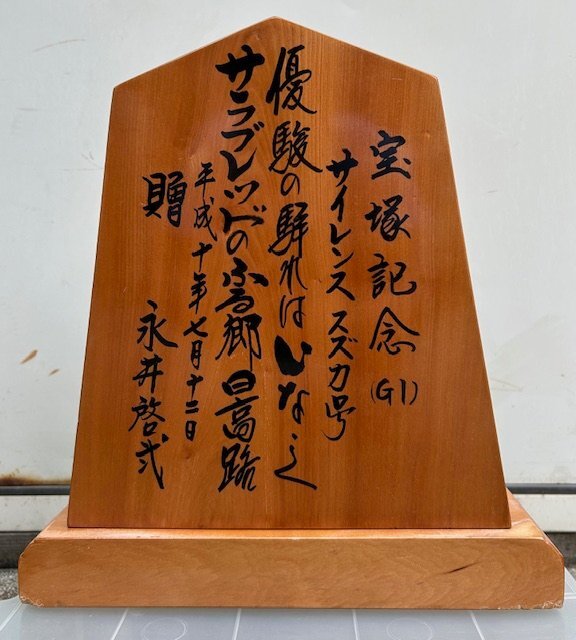 宝塚記念(G1)
サイレンススズカ号
優駿の
れはいななく
サラブレッドのふる郷 日高路
平成十年七月十二日
贈 永井啓弍